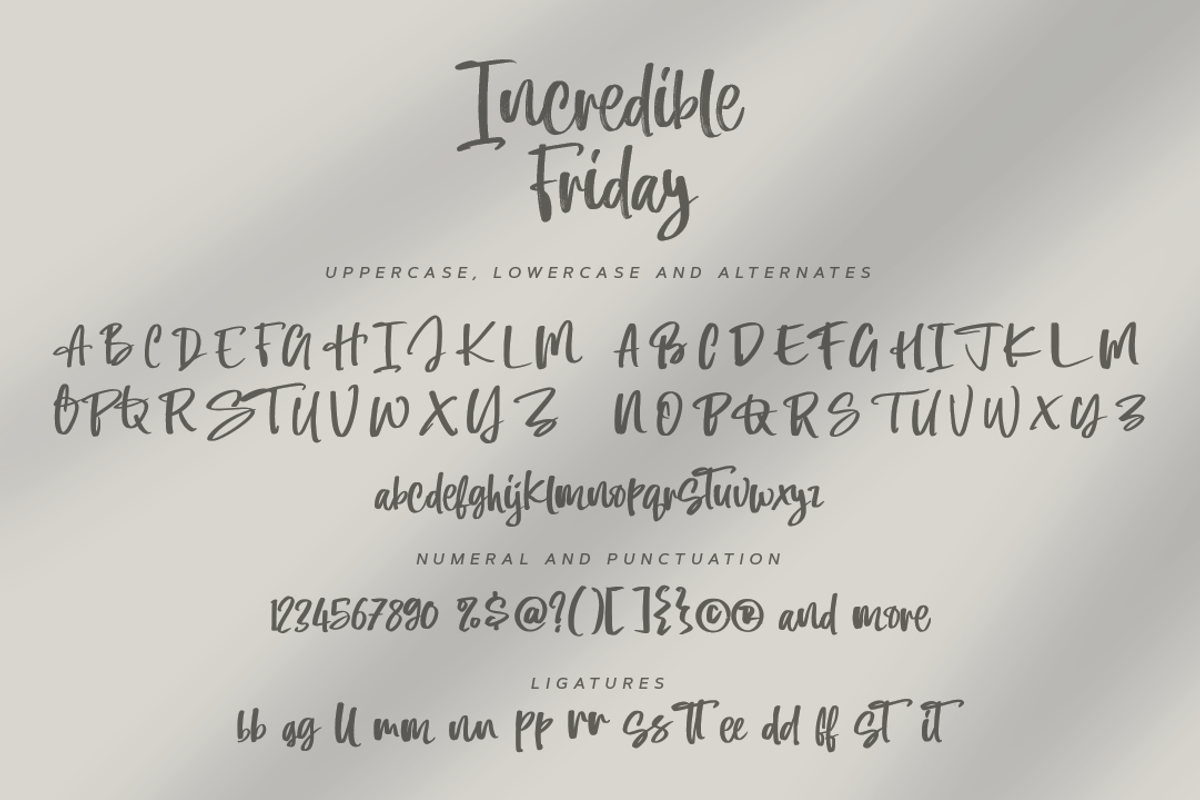 Incredible
Friday
UPPERCASE, LOWERCASE AND ALTERNATES
A B C D E F G H I J K L M A B C D E F G H I J K L M
O P Q R S T U V W X Y Z N O P Q R S T U V W X Y Z
abcdefghijklmnopqrstuvwxyz
NUMERAL AND PUNCTUATION
1234567890 %$@?()[]{}©® and more
LIGATURES
bb gg ll mm nn pp rr ss tt ee dd ff st it